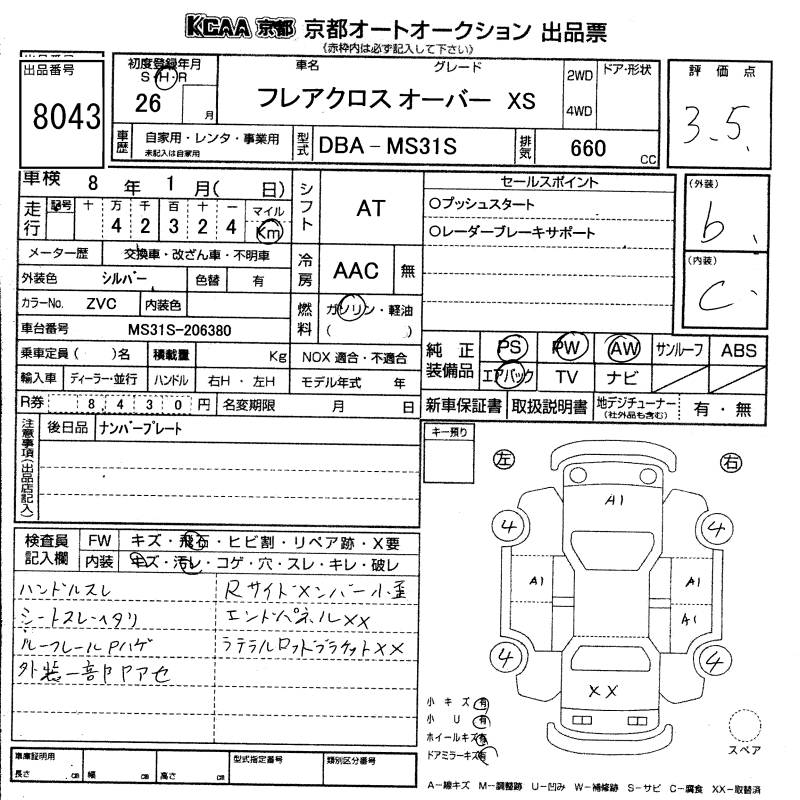 KCAA 京都 京都オートオークション 出品票
(赤枠内は必ず記入して下さい)
出品番号
8043
初度登録年月
S・H・R
26 月
車名 グレード
フレアクロス オーバー XS
2WD
4WD
ドア・形状
評価点
3.5
車歴
自家用・レンタ・事業用
未記入は自家用
型式
DBA-MS31S
排気
660 cc
車検 8 年 1 月( 日)
走行
記号 十 万 千 百 十 一
4 2 3 2 4
マイル
Km
シフト
AT
セールスポイント
○プッシュスタート
○レーダーブレーキサポート
(外装)
b
(内装)
C
メーター歴 交換車・改ざん車・不明車
外装色 シルバー 色替 有
冷房
AAC 無
カラーNo. ZVC 内装色
燃料
ガソリン・軽油
( )
車台番号 MS31S-206380
乗車定員( )名 積載量 Kg NOX 適合・不適合
輸入車 ディーラー・並行 ハンドル 右H・左H モデル年式 年
R券 8,430円 名変期限 月 日
純正装備品
PS PW AW サンルーフ ABS
エアバック TV ナビ
新車保証書 取扱説明書 地デジチューナー
(社外品も含む)
有・無
注意事項(出品店記入)
後日品 ナンバープレート
キー預り
左 右
検査員記入欄
FW キズ・飛石・ヒビ割・リペア跡・X要
内装 キズ・汚レ・コゲ・穴・スレ・キレ・破レ
ハンドルスレ Rサイドメンバー小歪
シートスレヘタリ エンドパネルXX
ルーフレールPハゲ ラテラルロッドブラケットXX
外装一部ヤケアセ
A1
4 4
A1 A1
A1
4 4
XX
小キズ 有
小U 有
ホイールキズ 有
ドアミラーキズ 有
スペア
車庫証明用
長さ cm 幅 cm 高さ cm
型式指定番号
類別区分番号
A-線キズ M-調整跡 U-凹み W-補修跡 S-サビ C-腐食 XX-取替済